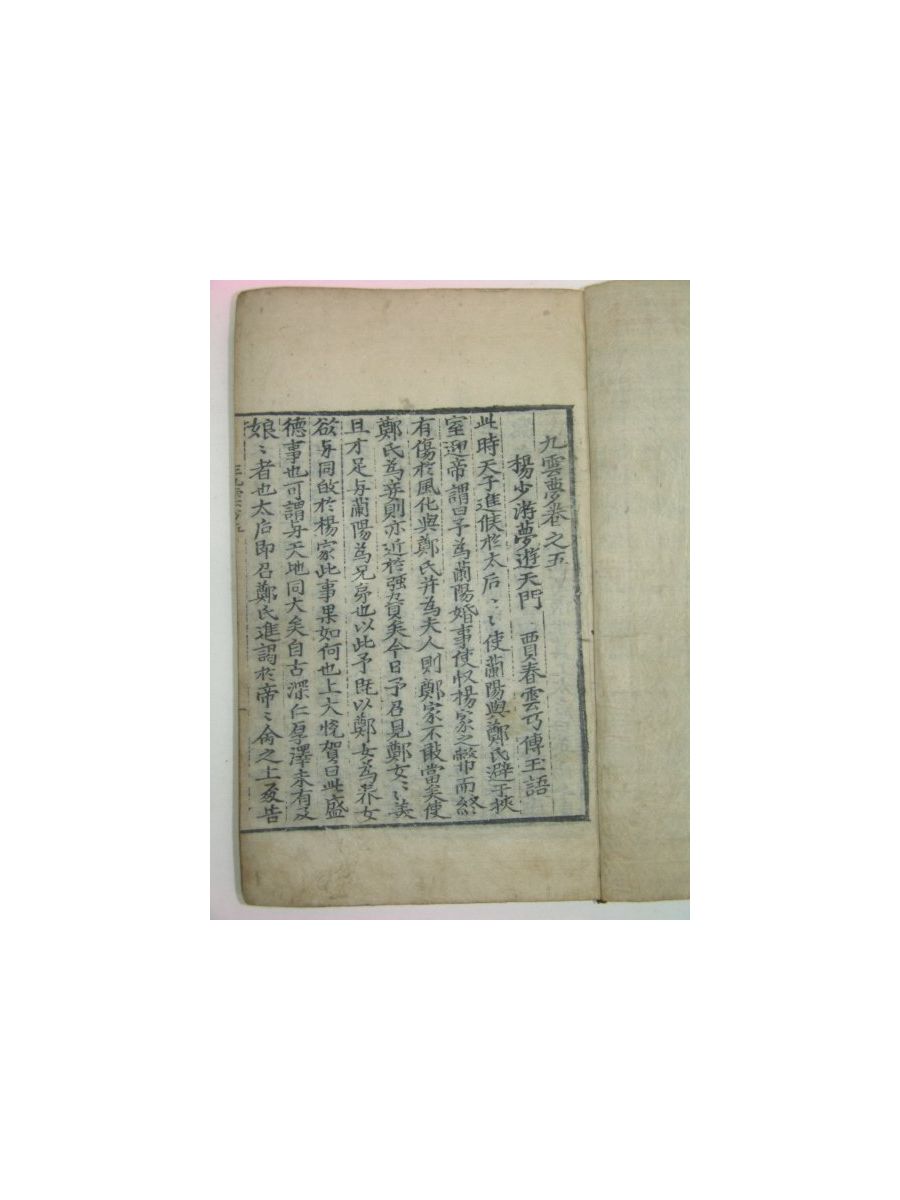 九雲夢卷之五
楊少游夢遊天門 賈春雲巧傳玉語
此時天子進候於太后〻〻使蘭陽與鄭氏避于狹
室迎帝謂曰予為蘭陽婚事使収楊家之幣而終
有傷於風化與鄭氏并為夫人則鄭家不敢當矣使
鄭氏為妾則亦近於强矣今日予召見鄭女〻〻美
且才足与蘭陽為兄弟也以此予既以鄭女為养女
欲与同敀於楊家此事果如何也上大悅賀曰此盛
德事也可謂与天地同大矣自古深仁厚澤未有及
娘〻者也太后即召鄭氏進謁於帝〻命之上殿告